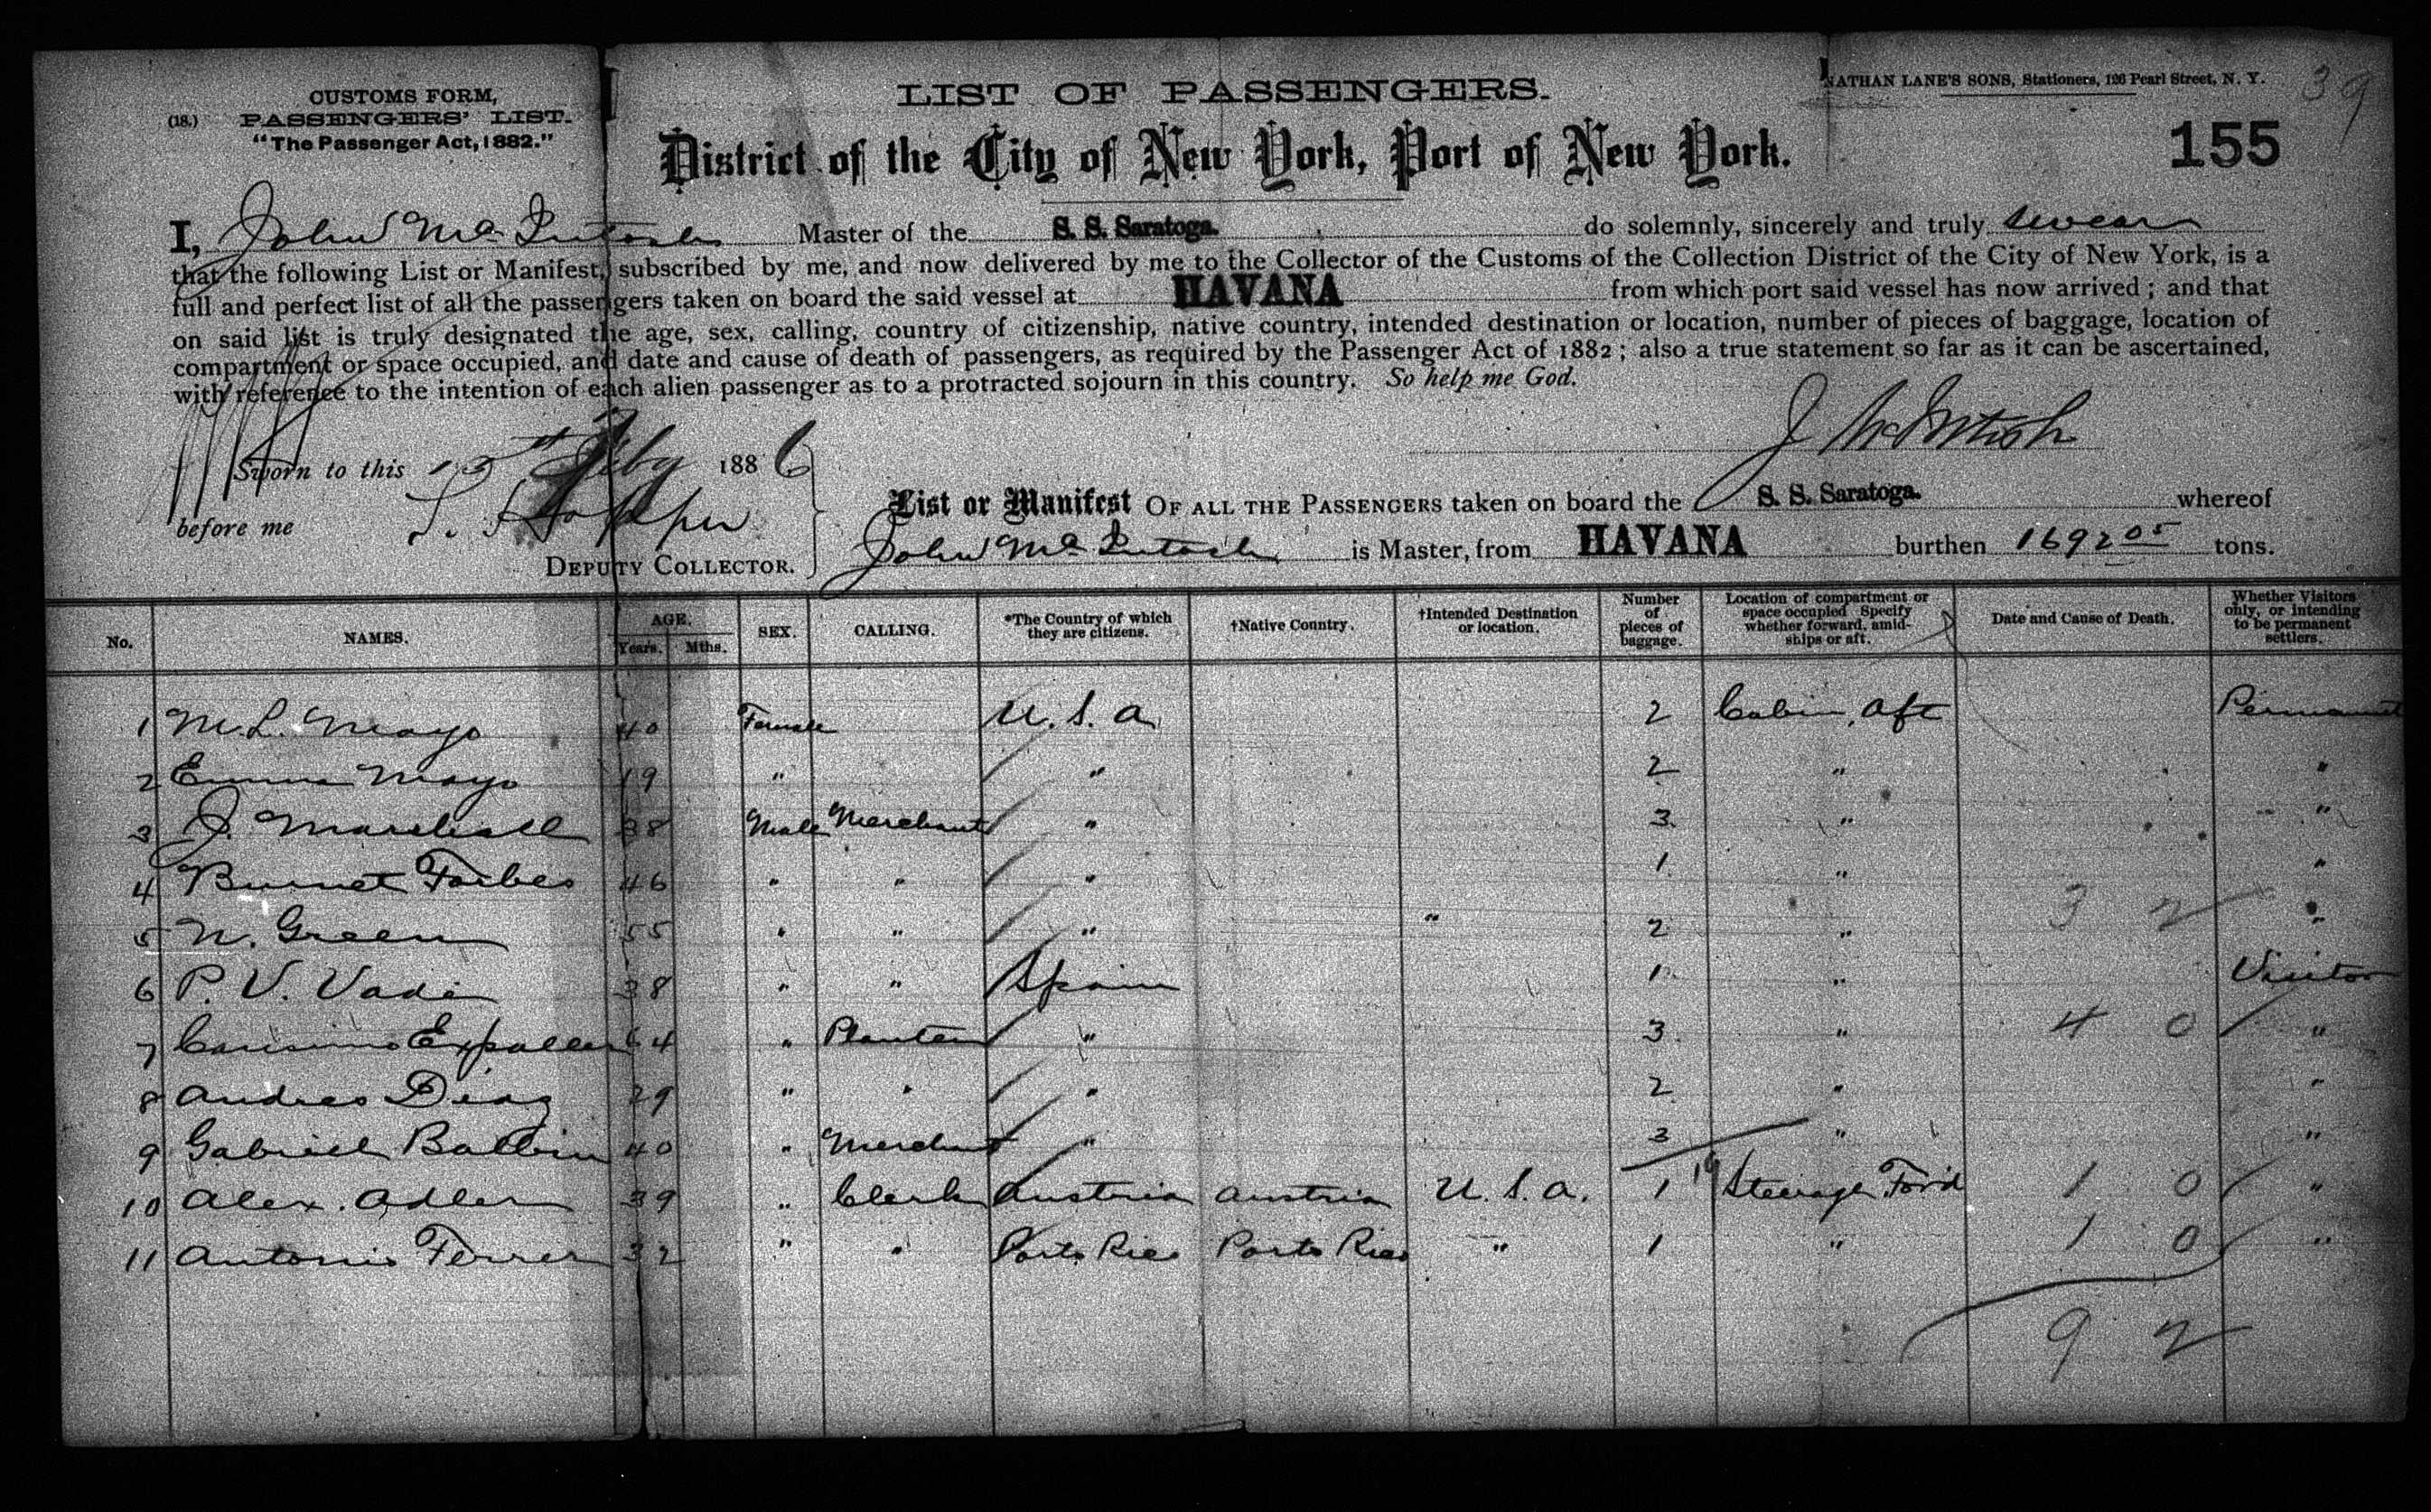 39
CUSTOMS FORM,
(18.) PASSENGERS' LIST.
"The Passenger Act, 1882."
LIST OF PASSENGERS.
NATHAN LANE'S SONS, Stationers, 126 Pearl Street, N. Y.
District of the City of New York, Port of New York.
155
I, John McIntosh Master of the S. S. Saratoga. do solemnly, sincerely and truly swear
that the following List or Manifest, subscribed by me, and now delivered by me to the Collector of the Customs of the Collection District of the City of New York, is a
full and perfect list of all the passengers taken on board the said vessel at HAVANA from which port said vessel has now arrived; and that
on said list is truly designated the age, sex, calling, country of citizenship, native country, intended destination or location, number of pieces of baggage, location of
compartment or space occupied, and date and cause of death of passengers, as required by the Passenger Act of 1882; also a true statement so far as it can be ascertained,
with reference to the intention of each alien passenger as to a protracted sojourn in this country. So help me God.
J McIntosh
Sworn to this Feby 1886
before me
DEPUTY COLLECTOR.
List or Manifest OF ALL THE PASSENGERS taken on board the S. S. Saratoga. whereof
John McIntosh is Master, from HAVANA burthen 1692 05 tons.
No. NAMES. AGE. Years. Mths. SEX. CALLING. *The Country of which they are citizens. †Native Country. †Intended Destination or location. Number of pieces of baggage. Location of compartment or space occupied Specify whether forward, amidships or aft. Date and Cause of Death. Whether Visitors only, or intending to be permanent settlers.
1 M. L. Mayo 40 Female U. S. A 2 Cabin, Aft Permanent
2 Emma Mayo 19 " " 2 " "
3 J. Marshall 38 Male Merchant " 3 " "
4 Burnet Forbes 46 " " " 1 " "
5 N. Green 55 " " " " 2 " 3 2 "
6 P. V. Vadi 38 " " Spain 1 " Visitor
7 64 " Planter " 3 " 4 0 "
8 Andres Diaz 29 " " " 2 " "
9 Gabriel Balbin 40 " Merchant " 3 " "
19
10 Alex. Adler 39 " Clerk Austria Austria U. S. A. 1 Steerage For'd 1 0 "
11 Antonio Ferrer 32 " " Porto Rico Porto Rico " 1 " 1 0 "
9 2